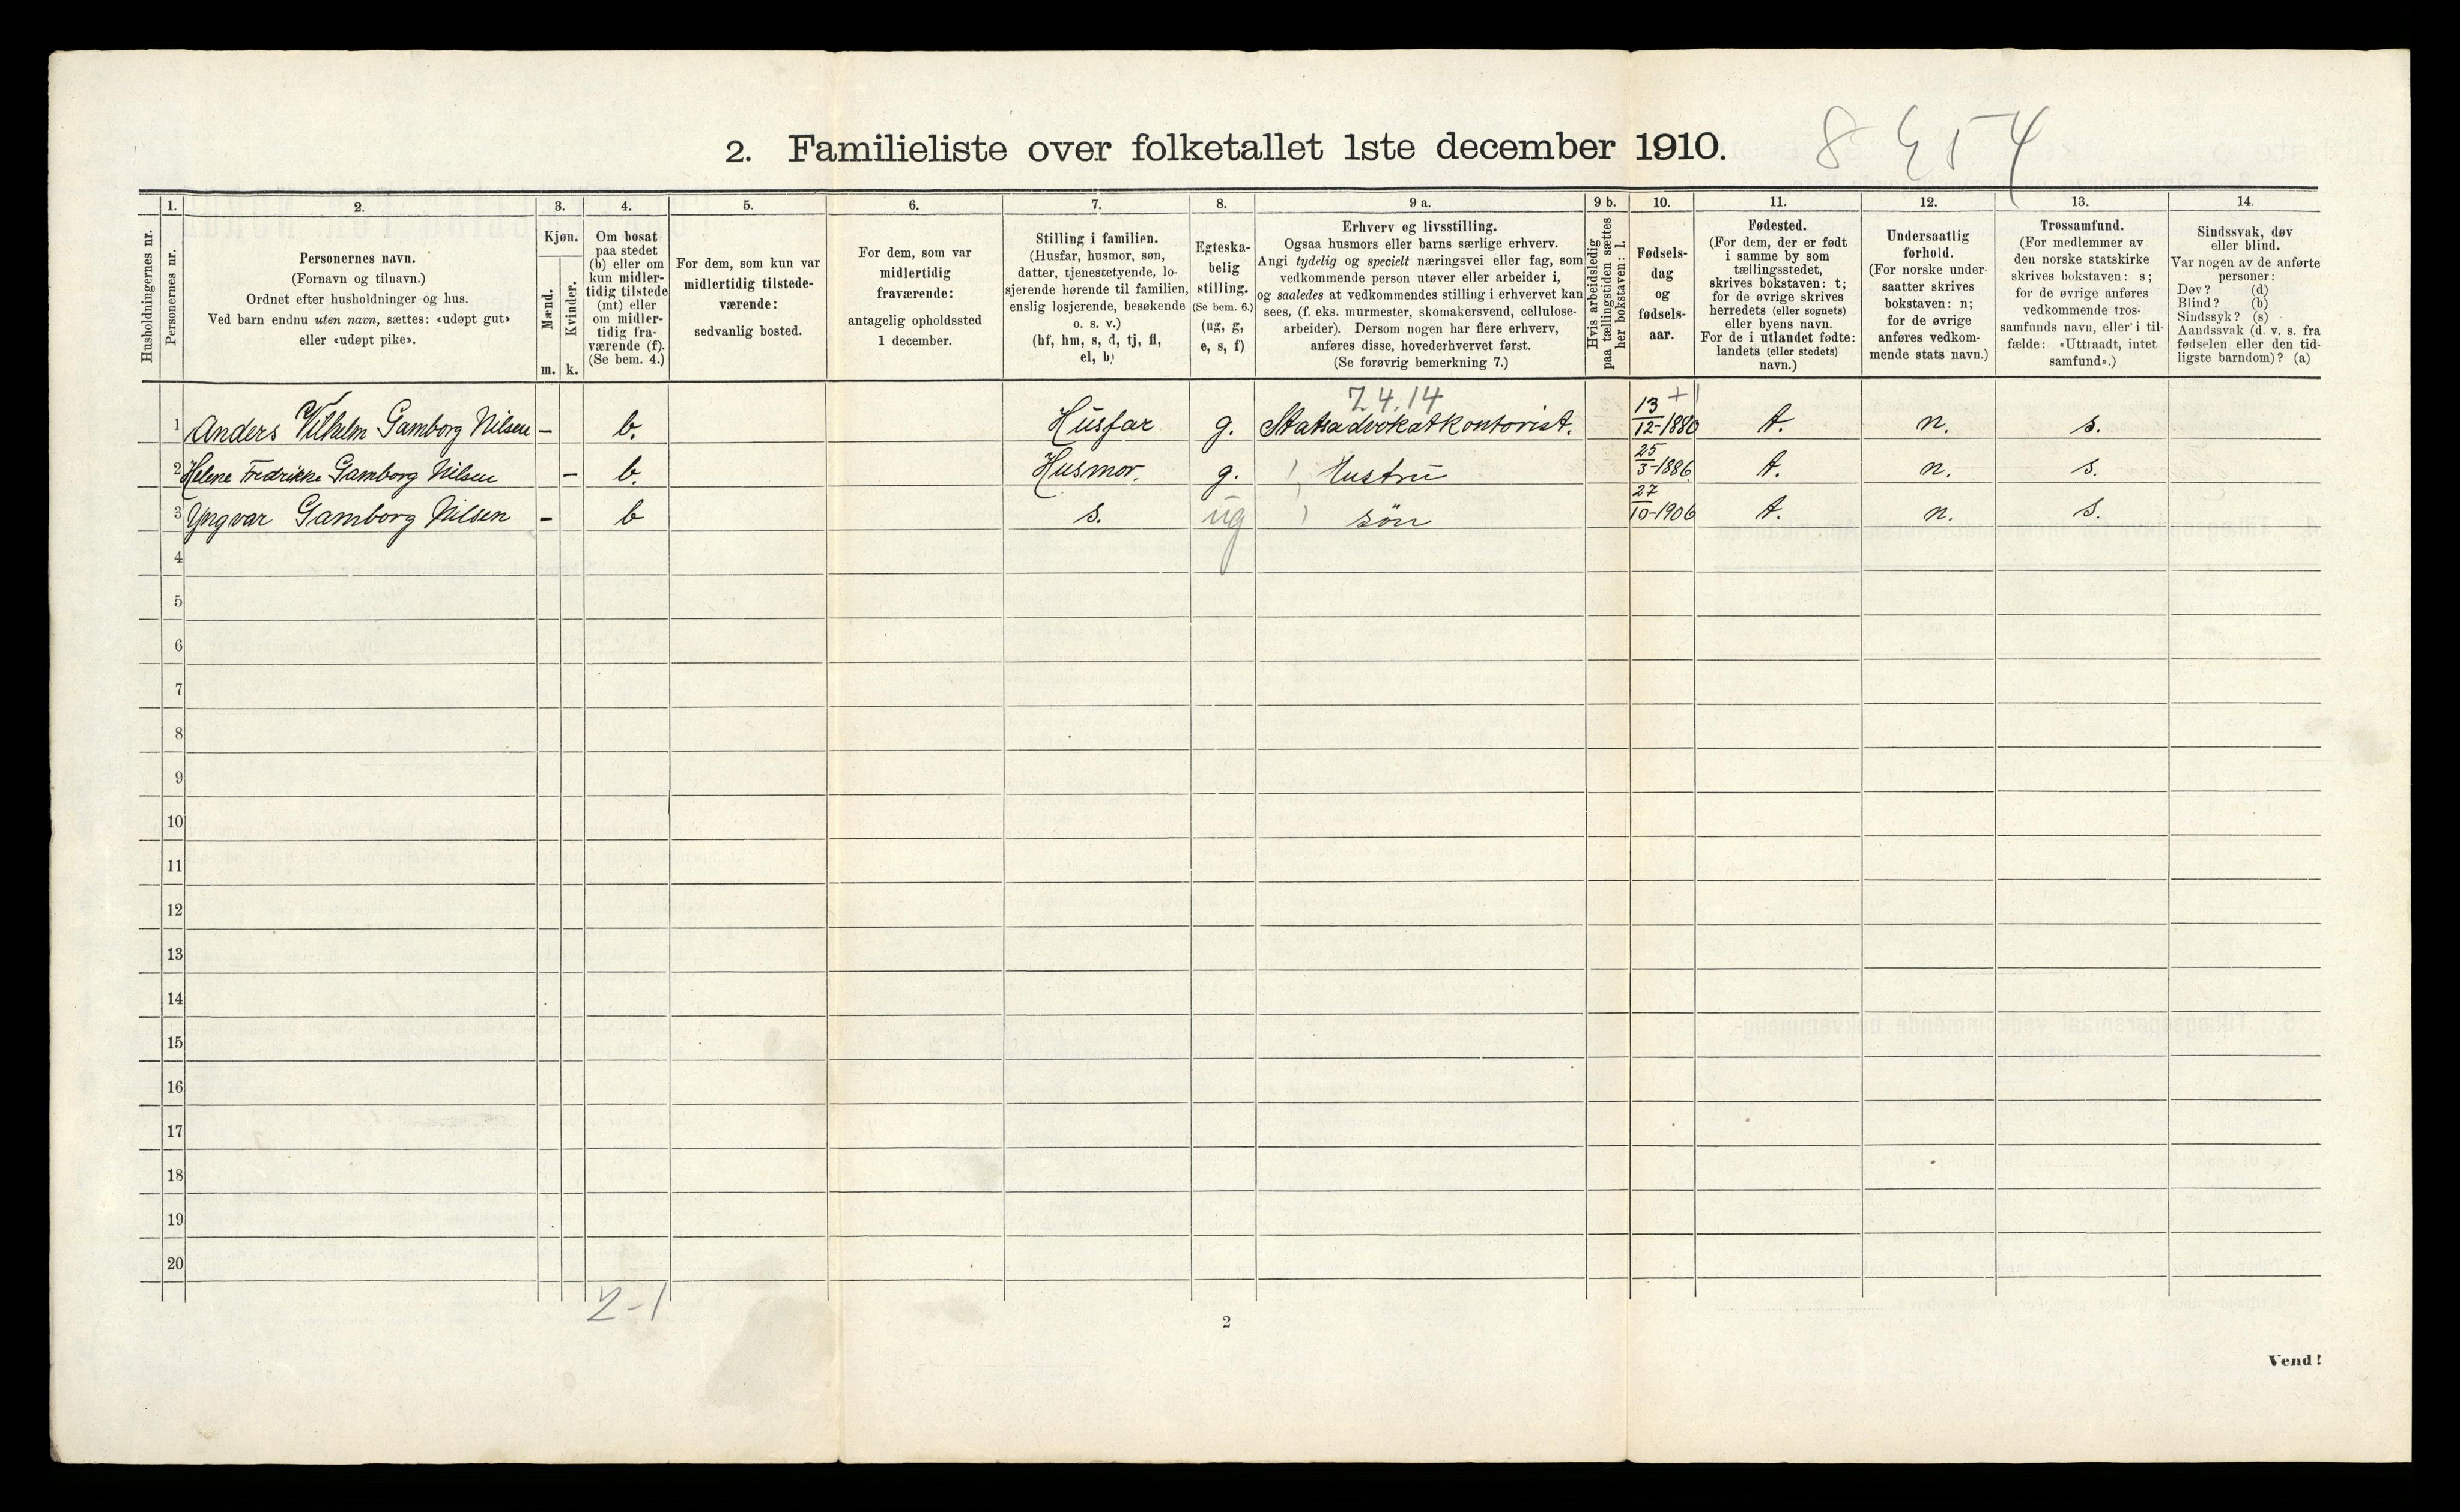 8 4 5 4
2. Familieliste over folketallet 1ste december 1910.
Husholdningernes nr.
1.
Personernes nr.
2.
Personernes navn.
(Fornavn og tilnavn.)
Ordnet efter husholdninger og hus.
Ved barn endnu uten navn, sættes: «udøpt gut»
eller «udøpt pike».
3.
Kjøn.
Mænd.
Kvinder.
m. k.
4.
Om bosat
paa stedet
(b) eller om
kun midler-
tidig tilstede
(mt) eller
om midler-
tidig fra-
værende (f).
(Se bem. 4.)
5.
For dem, som kun var
midlertidig tilstede-
værende:
sedvanlig bosted.
6.
For dem, som var
midlertidig
fraværende:
antagelig opholdssted
1 december.
7.
Stilling i familien.
(Husfar, husmor, søn,
datter, tjenestetyende, lo-
sjerende hørende til familien,
enslig losjerende, besøkende
o. s. v.)
(hf, hm, s, d, tj, fl,
el, b)
8.
Egteska-
belig
stilling.
(Se bem. 6.)
(ug, g,
e, s, f)
9 a.
Erhverv og livsstilling.
Ogsaa husmors eller barns særlige erhverv.
Angi tydelig og specielt næringsvei eller fag, som
vedkommende person utøver eller arbeider i,
og saaledes at vedkommendes stilling i erhvervet kan
sees, (f. eks. murmester, skomakersvend, cellulose-
arbeider). Dersom nogen har flere erhverv,
anføres disse, hovederhvervet først.
(Se forøvrig bemerkning 7.)
9 b.
Hvis arbeidsledig
paa tællingstiden sættes
her bokstaven: l.
10.
Fødsels-
dag
og
fødsels-
aar.
11.
Fødested.
(For dem, der er født
i samme by som
tællingsstedet,
skrives bokstaven: t;
for de øvrige skrives
herredets (eller sognets)
eller byens navn.
For de i utlandet fødte:
landets (eller stedets)
navn.)
12.
Undersaatlig
forhold.
(For norske under-
saatter skrives
bokstaven: n;
for de øvrige
anføres vedkom-
mende stats navn.)
13.
Trossamfund.
(For medlemmer av
den norske statskirke
skrives bokstaven: s;
for de øvrige anføres
vedkommende tros-
samfunds navn, eller i til-
fælde: «Uttraadt, intet
samfund».)
14.
Sindssvak, døv
eller blind.
Var nogen av de anførte
personer:
Døv? (d)
Blind? (b)
Sindssyk? (s)
Aandssvak (d. v. s. fra
fødselen eller den tid-
ligste barndom)? (a)
7.4.14
1 Anders Vilhelm Gamborg Nilsen – b. Husfar g. Statsadvokatkontorist. 13/12-1880 t. n. s.
2 Helene Fredrikke Gamborg Nilsen – b. Husmor. g. Hustru 25/3-1886 t. n. s.
3 Yngvar Gamborg Nilsen – b s. ug søn 27/10-1906 t. n. s.
4
5
6
7
8
9
10
11
12
13
14
15
16
17
18
19
20
2-1
2
Vend!